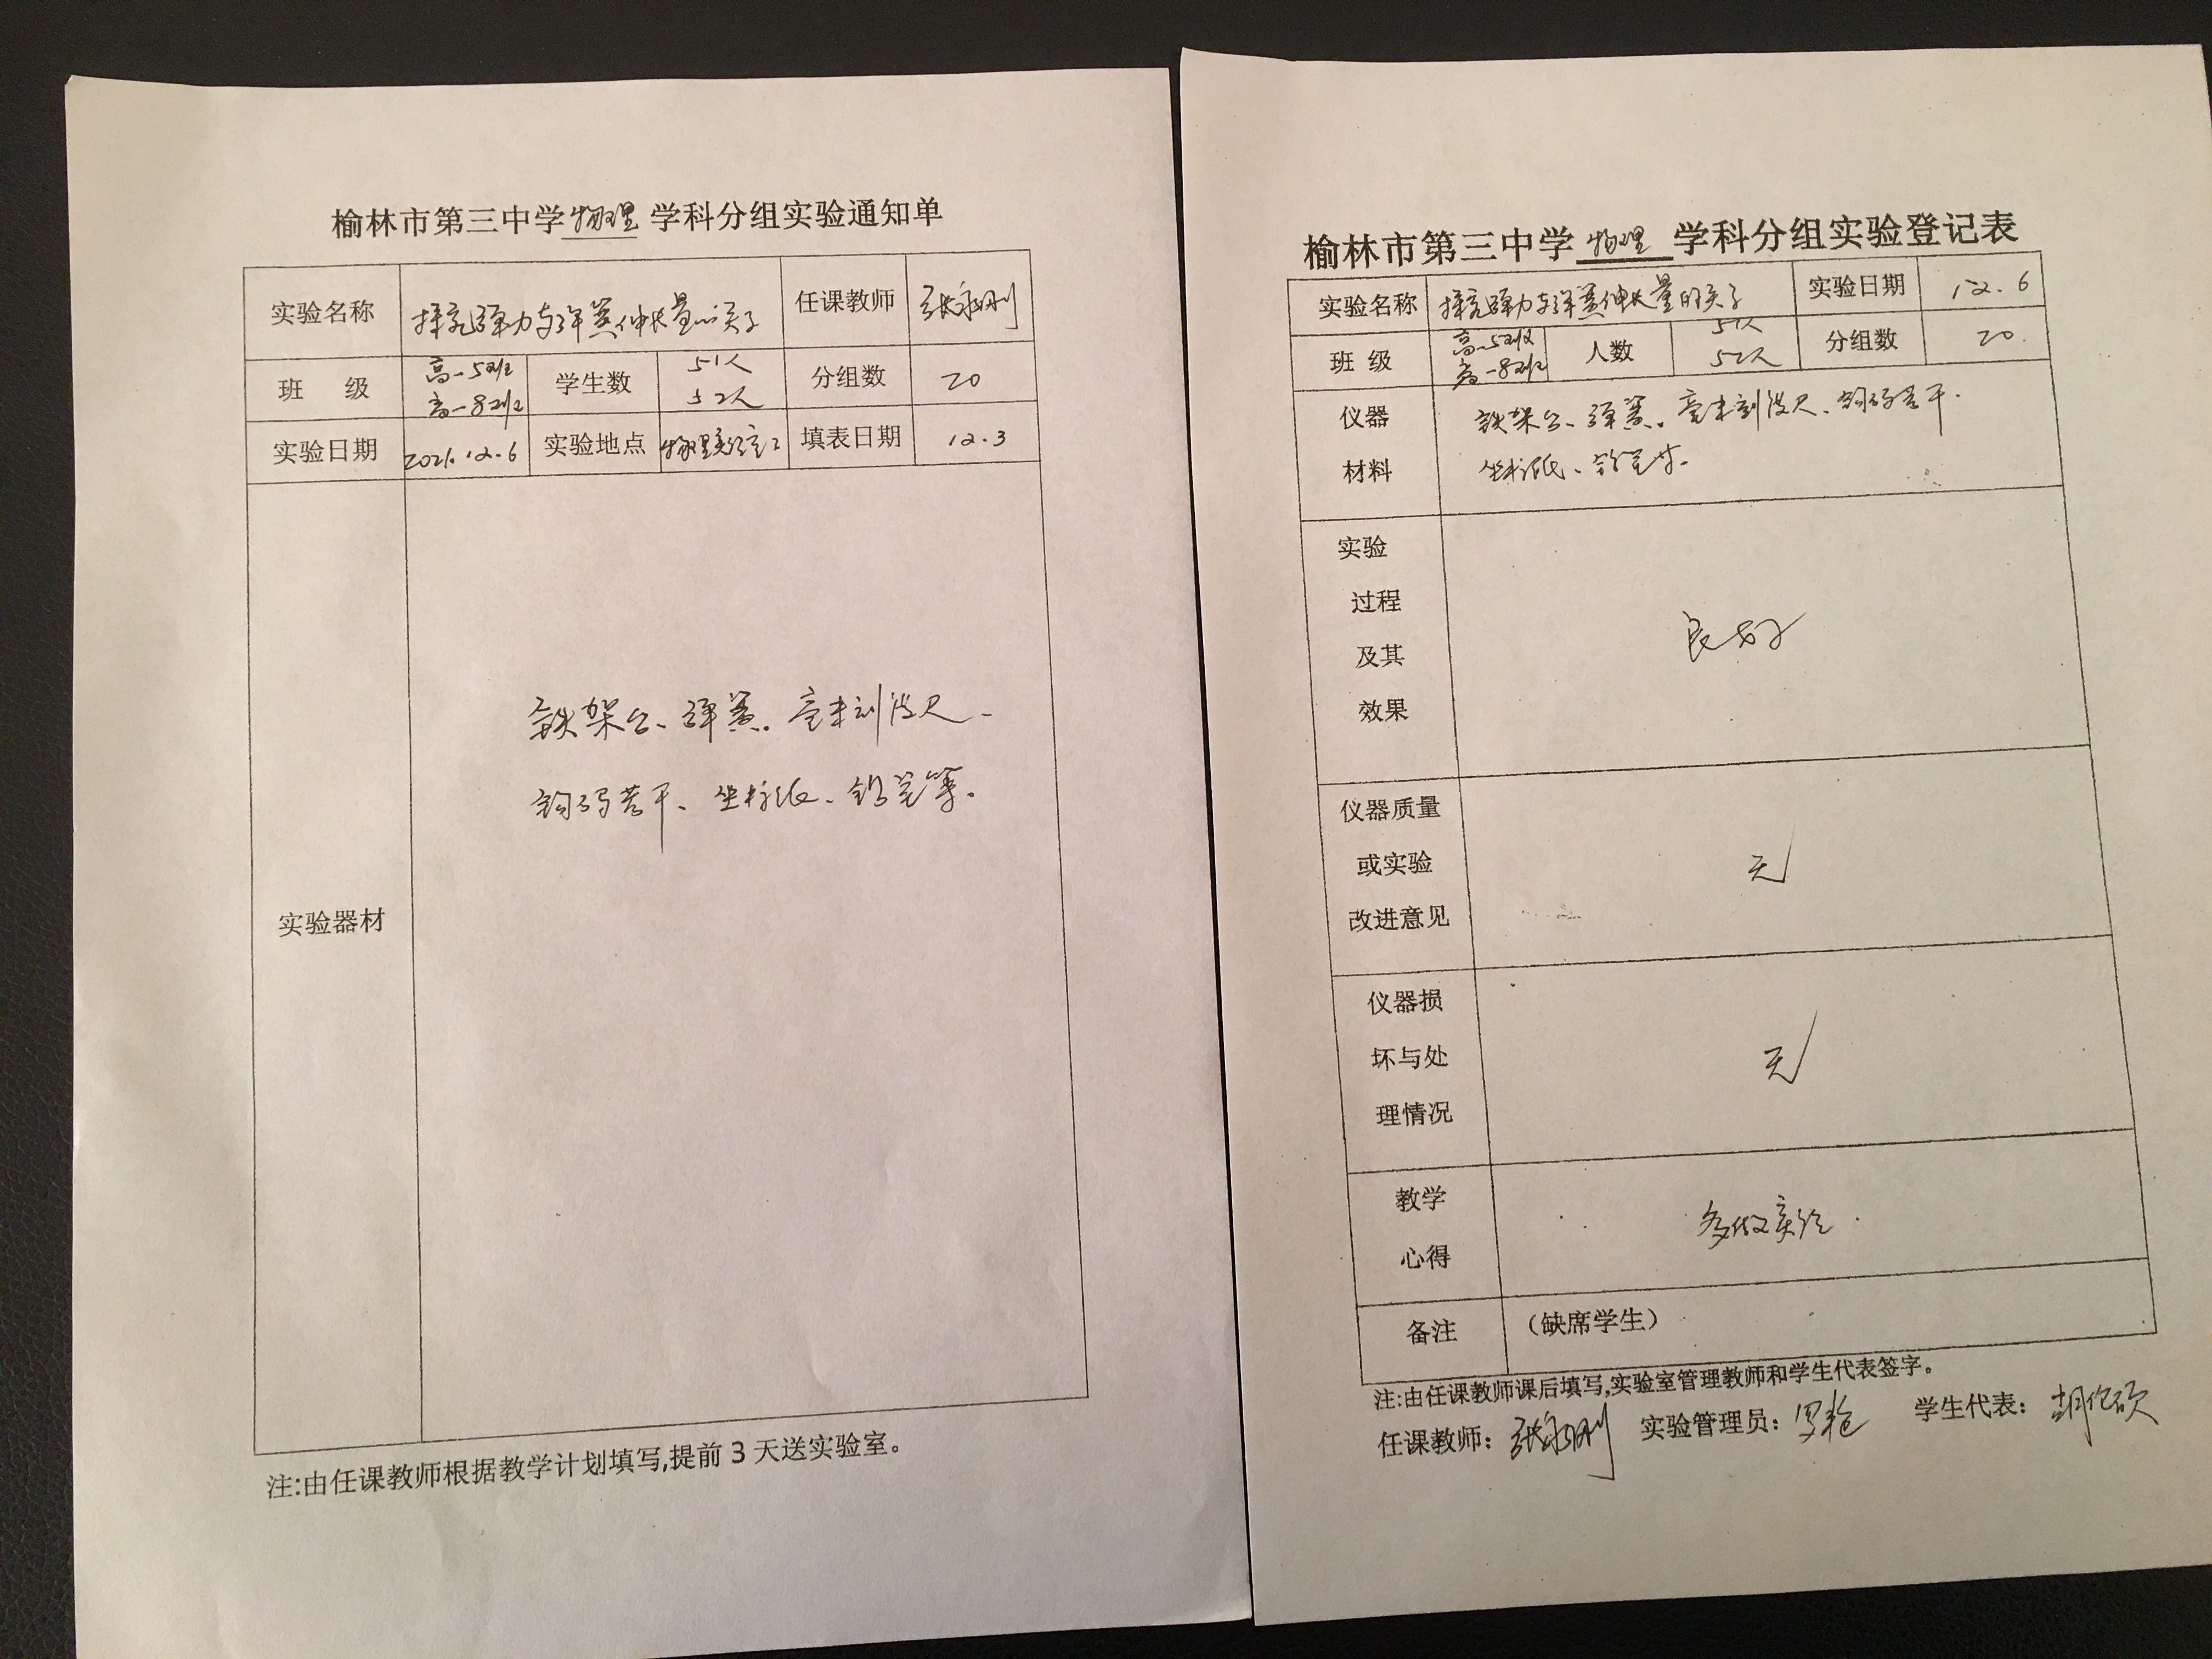 榆林市第三中学物理学科分组实验通知单
实验名称 探究弹力与弹簧伸长量的关系 任课教师 张永刚
班 级 高一5班 学生数 51人 分组数 20
高一8班 52人
实验日期 2021.12.6 实验地点 物理实验室2 填表日期 12.3
实验器材
铁架台、弹簧、毫米刻度尺、
钩码若干、坐标纸、铅笔等。
注:由任课教师根据教学计划填写,提前3天送实验室。
榆林市第三中学物理学科分组实验登记表
实验名称 探究弹力与弹簧伸长量的关系 实验日期 12.6
班 级 高一5班 人数 51人 分组数 20.
高一8班 52人
仪器 铁架台、弹簧、毫米刻度尺、钩码若干、
材料 坐标纸、铅笔等。
实验
过程
及其
效果
良好
仪器质量
或实验
改进意见
无
仪器损
坏与处
理情况
无
教学
心得
多做实验.
备注 （缺席学生）
注:由任课教师课后填写,实验室管理教师和学生代表签字。
任课教师：张永刚 实验管理员： 学生代表：